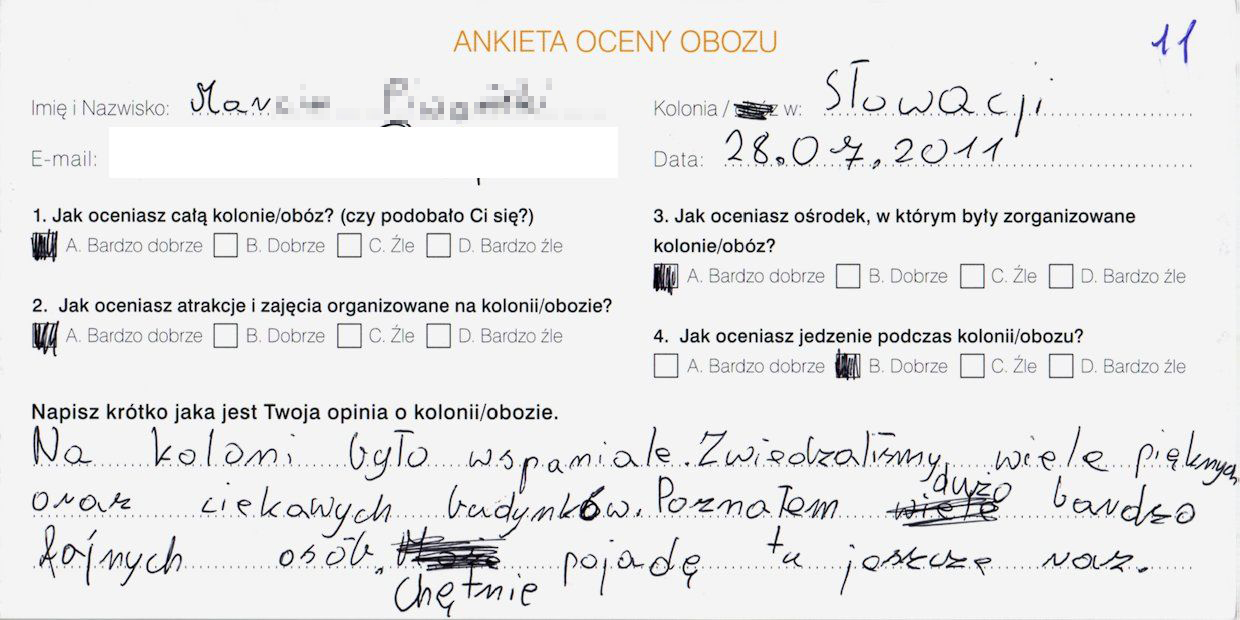 ANKIETA OCENY OBOZU
11
Imię i Nazwisko:
Kolonia / w: Słowacji
E-mail:
Data: 28.07.2011
1. Jak oceniasz całą kolonie/obóz? (czy podobało Ci się?)
A. Bardzo dobrze B. Dobrze C. Źle D. Bardzo źle
2. Jak oceniasz atrakcje i zajęcia organizowane na kolonii/obozie?
A. Bardzo dobrze B. Dobrze C. Źle D. Bardzo źle
3. Jak oceniasz ośrodek, w którym były zorganizowane
kolonie/obóz?
A. Bardzo dobrze B. Dobrze C. Źle D. Bardzo źle
4. Jak oceniasz jedzenie podczas kolonii/obozu?
A. Bardzo dobrze B. Dobrze C. Źle D. Bardzo źle
Napisz krótko jaka jest Twoja opinia o kolonii/obozie.
Na koloni było wspaniale. Zwiedzaliśmy wiele pięknych
oraz ciekawych budynków. Poznałem dużo bardzo
fajnych osób. Chętnie pojadę tu jeszcze raz.